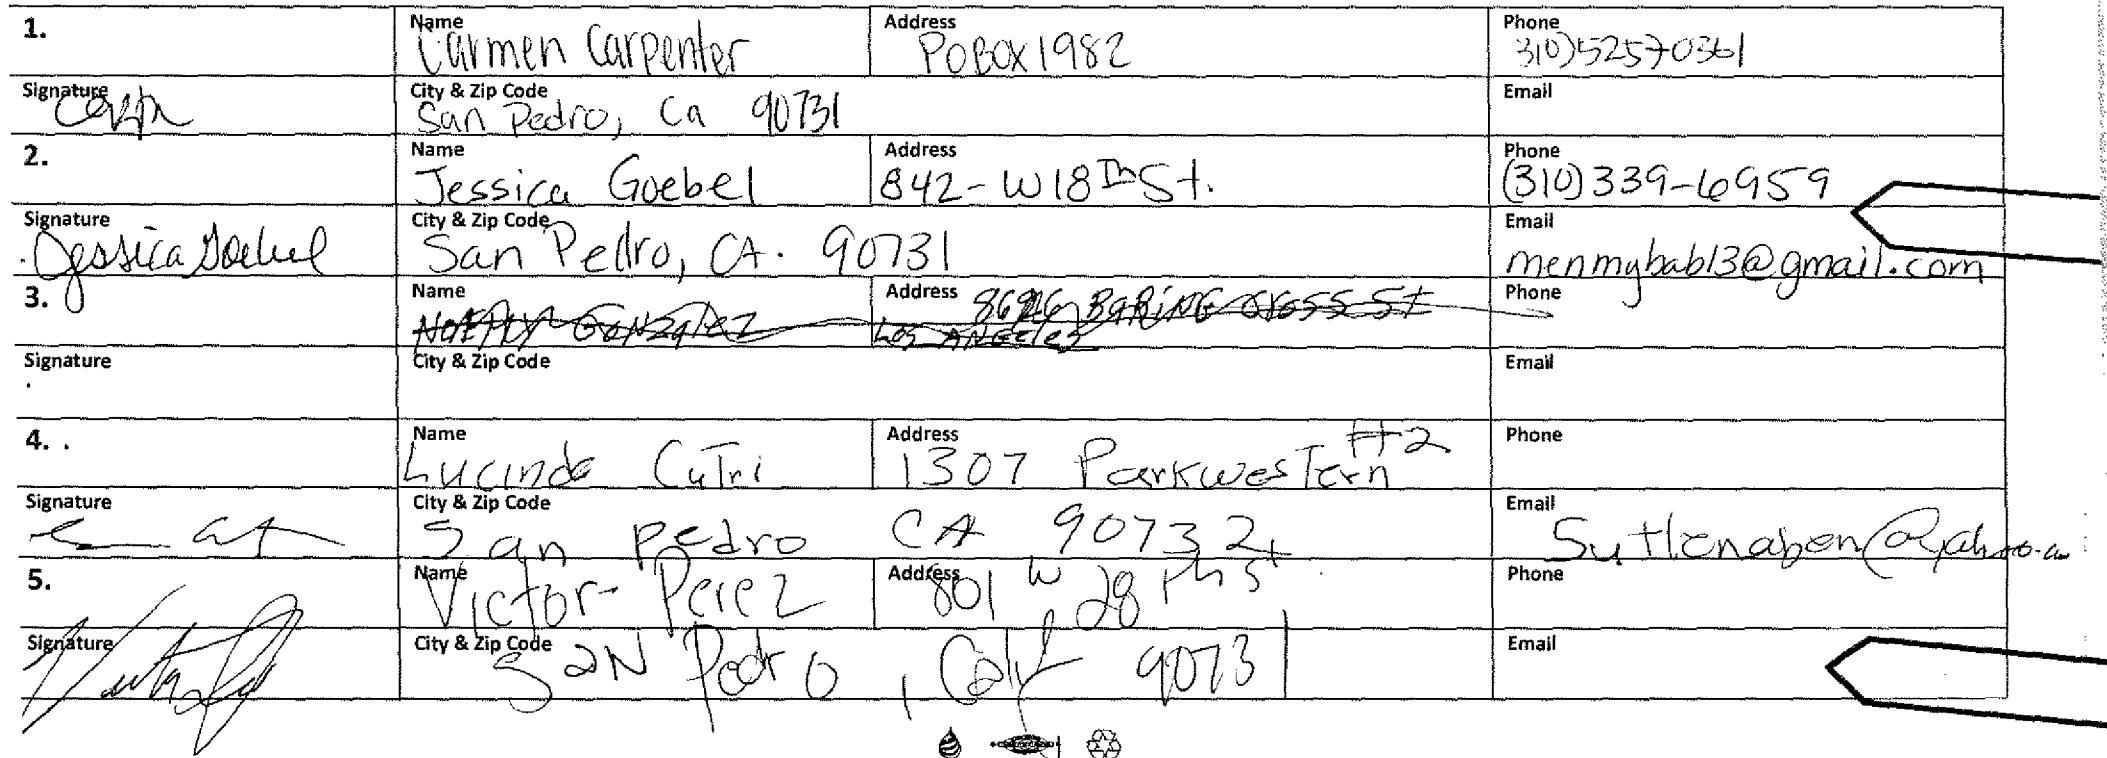 1. Name Carmen Carpenter Address PO BOX 1982 Phone 310)52570361
Signature City & Zip Code San Pedro, Ca 90731 Email
2. Name Jessica Goebel Address 842-W18Th St. Phone (310)339-6959
Signature Jessica Goebel City & Zip Code San Pedro, CA. 90731 Email menmybab13@gmail.com
3. Name Gonzalez Address St Phone
Los Angeles
Signature City & Zip Code Email
4. Name Lucinda CuTri Address 1307 ParkwesTern #2 Phone
Signature City & Zip Code San pedro CA 90732 Email
5. Name Victor Perez Address 801 W 28 th St Phone
Signature City & Zip Code SaN Pedro, Calif 90731 Email